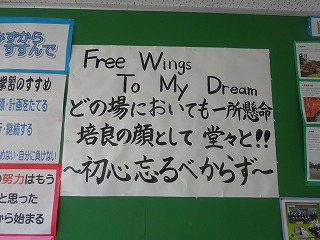 Free Wings
To My Dream
どの場においても一所懸命
培良の顔として 堂々と!!
〜初心忘るべからず〜
みずから
すすんで
学習のすすめ
標・計画をたてる
行・継続する
めない・自分に負けない
の努力はもう
と思った
から始まる